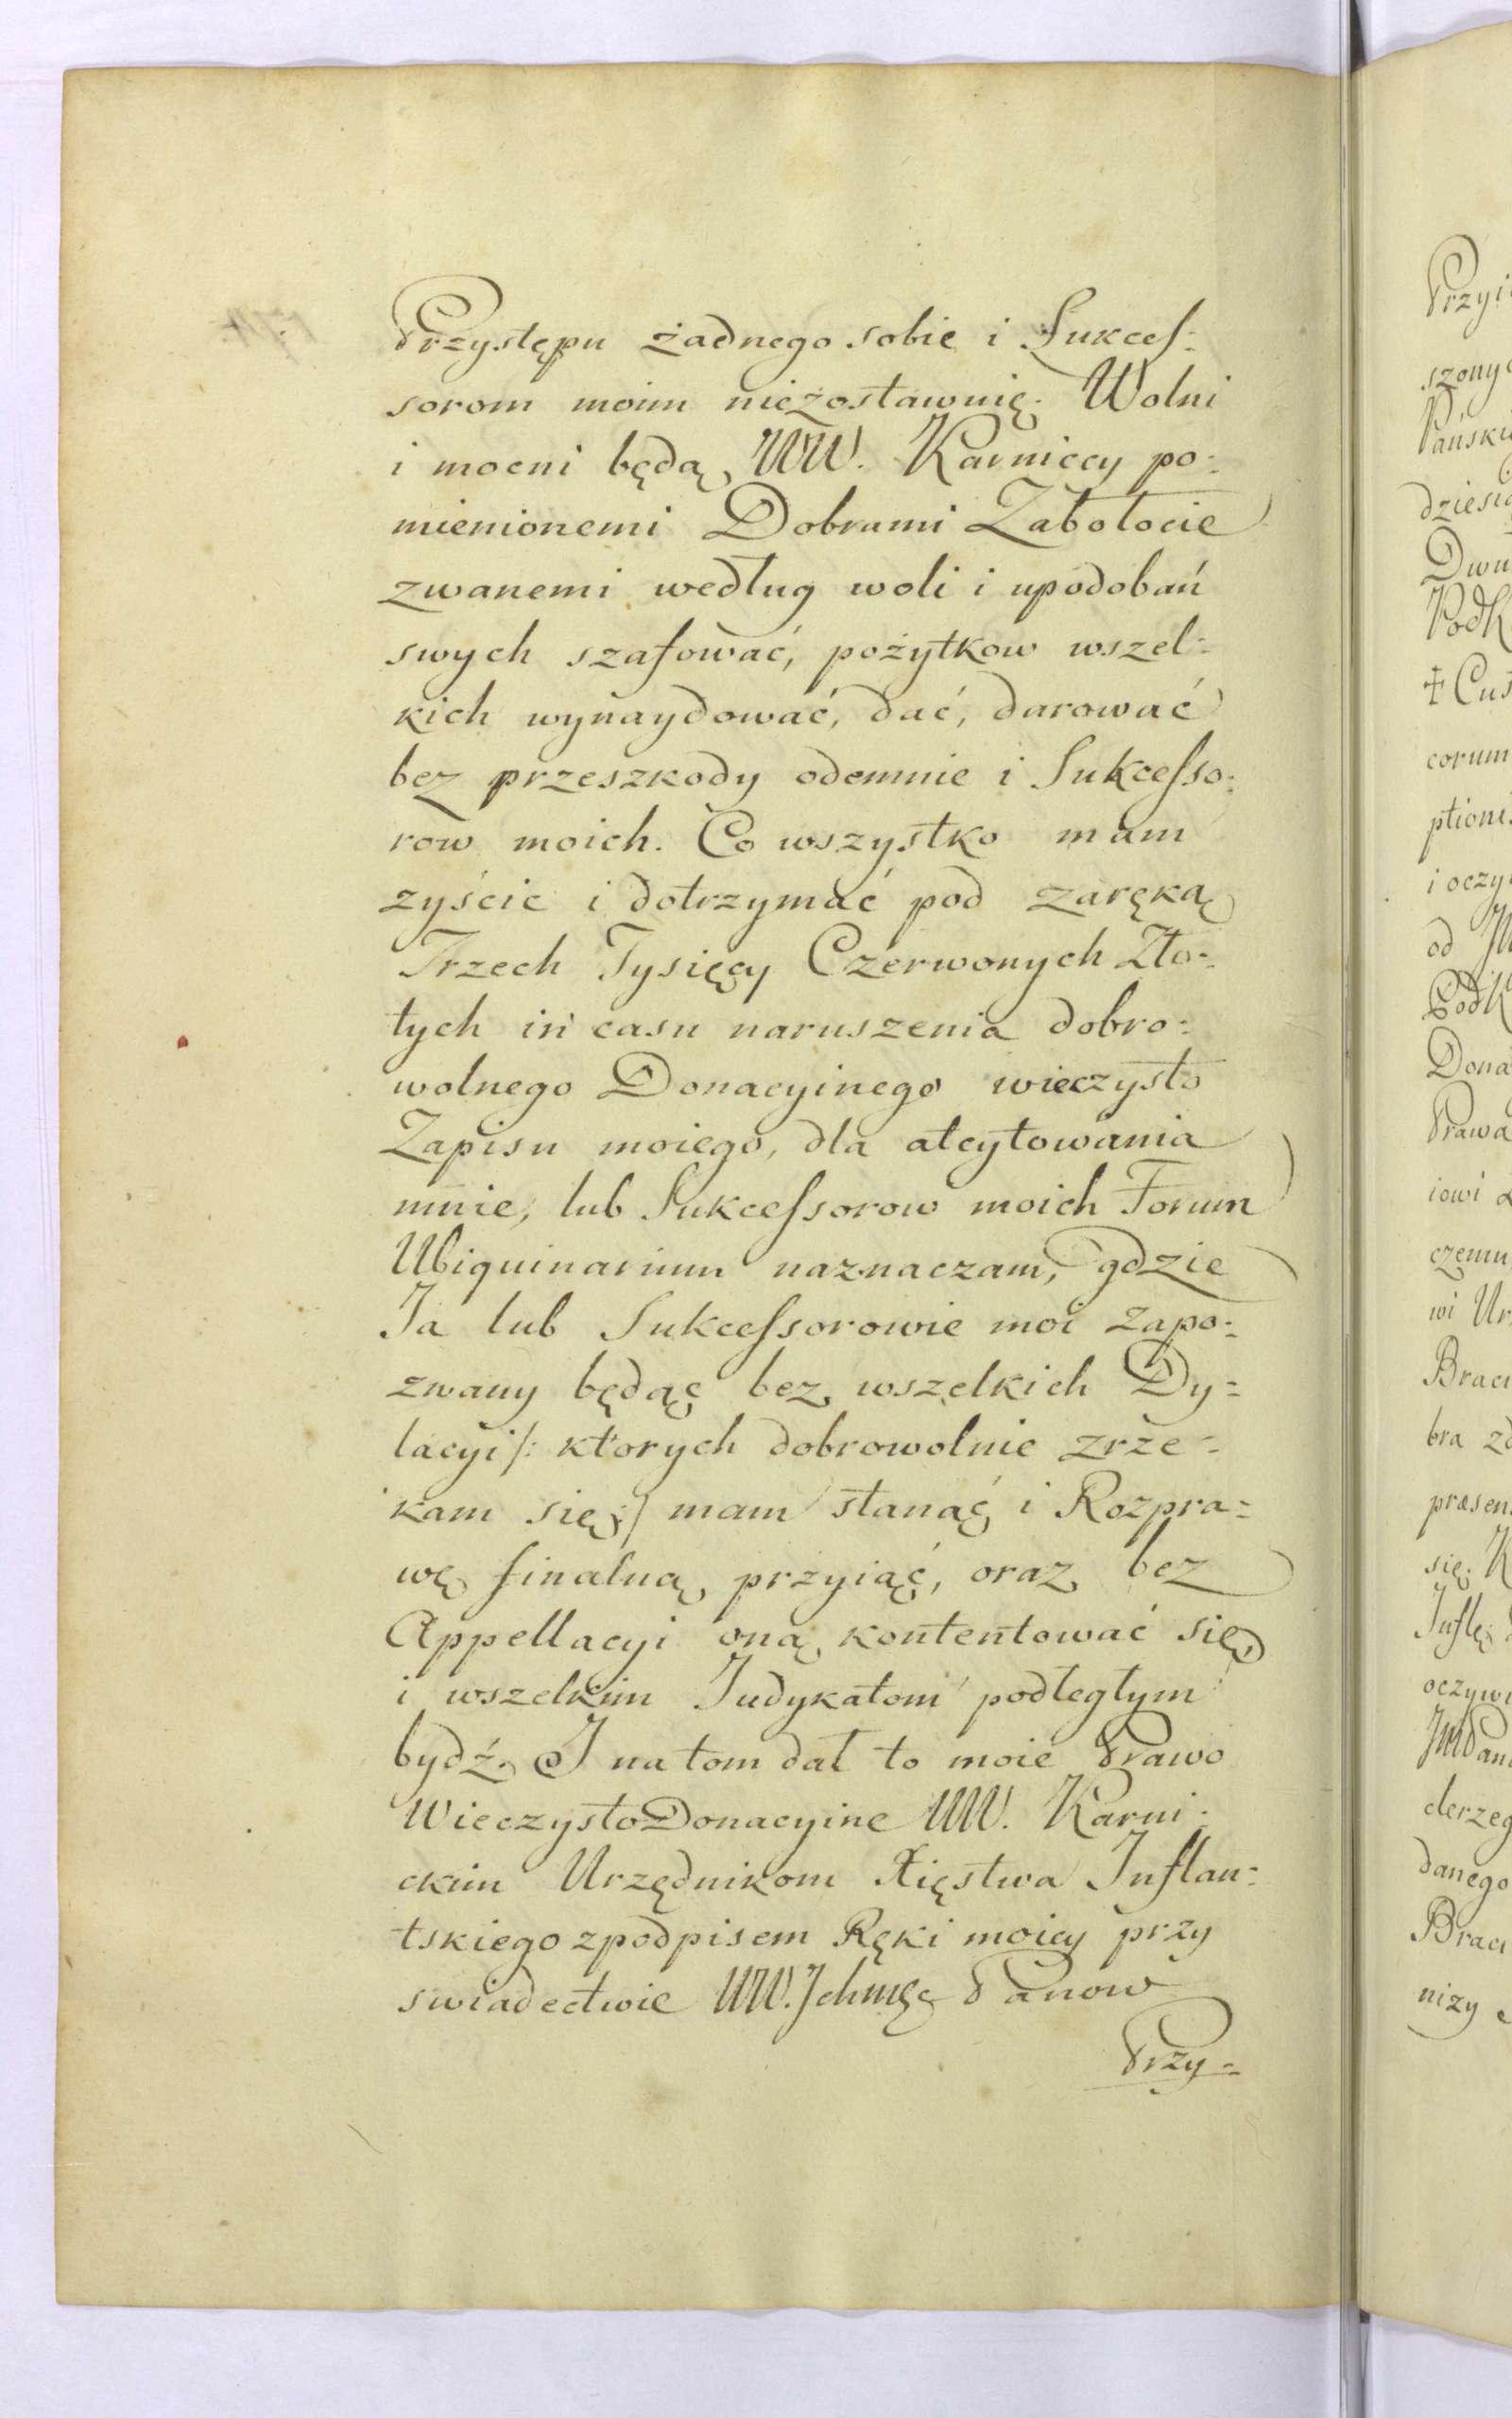 Przystępu żadnego sobie i Sukces:
sorom moim niezostawuię. Wolni
i mocni będą WW. Karniccy po:
mienionemi Dobrami Zabołocie
zwanemi według woli i upodobań
swych szafować, pożytkow wszel:
kich wynaydować, dać, darować
bez przeszkody odemnie i Sukcesso:
row moich. Co wszystko mam
zyścić i dotrzymać pod zaręką
Trzech Tysięcy Czerwonych Zło:
tych in casu naruszenia dobro:
wolnego Donacyinego wieczysto
Zapisu moiego, dla atcytowania
mnie, lub Sukcessorow moich Forum
Ubiquinarium naznaczam, gdzie
Ja lub Sukcessorowie moi zapo:
zwany będąc bez wszelkich Dy=
lacyi /: ktorych dobrowolnie zrze=
kam się :/ mam stanąć i Rozpra=
wę finalną przyiąć, oraz bez
Appellacyi oną kontentować się,
i wszelkim Judykatom podległym
bydź. I na tom dał to moie Prawo
Wieczysto Donacyine WW. Karni:
ckim Urzędnikom Xięstwa Inflan:
tskiego z podpisem Ręki moiey przy
swiadectwie WW. Ichmć Panow
Przy=